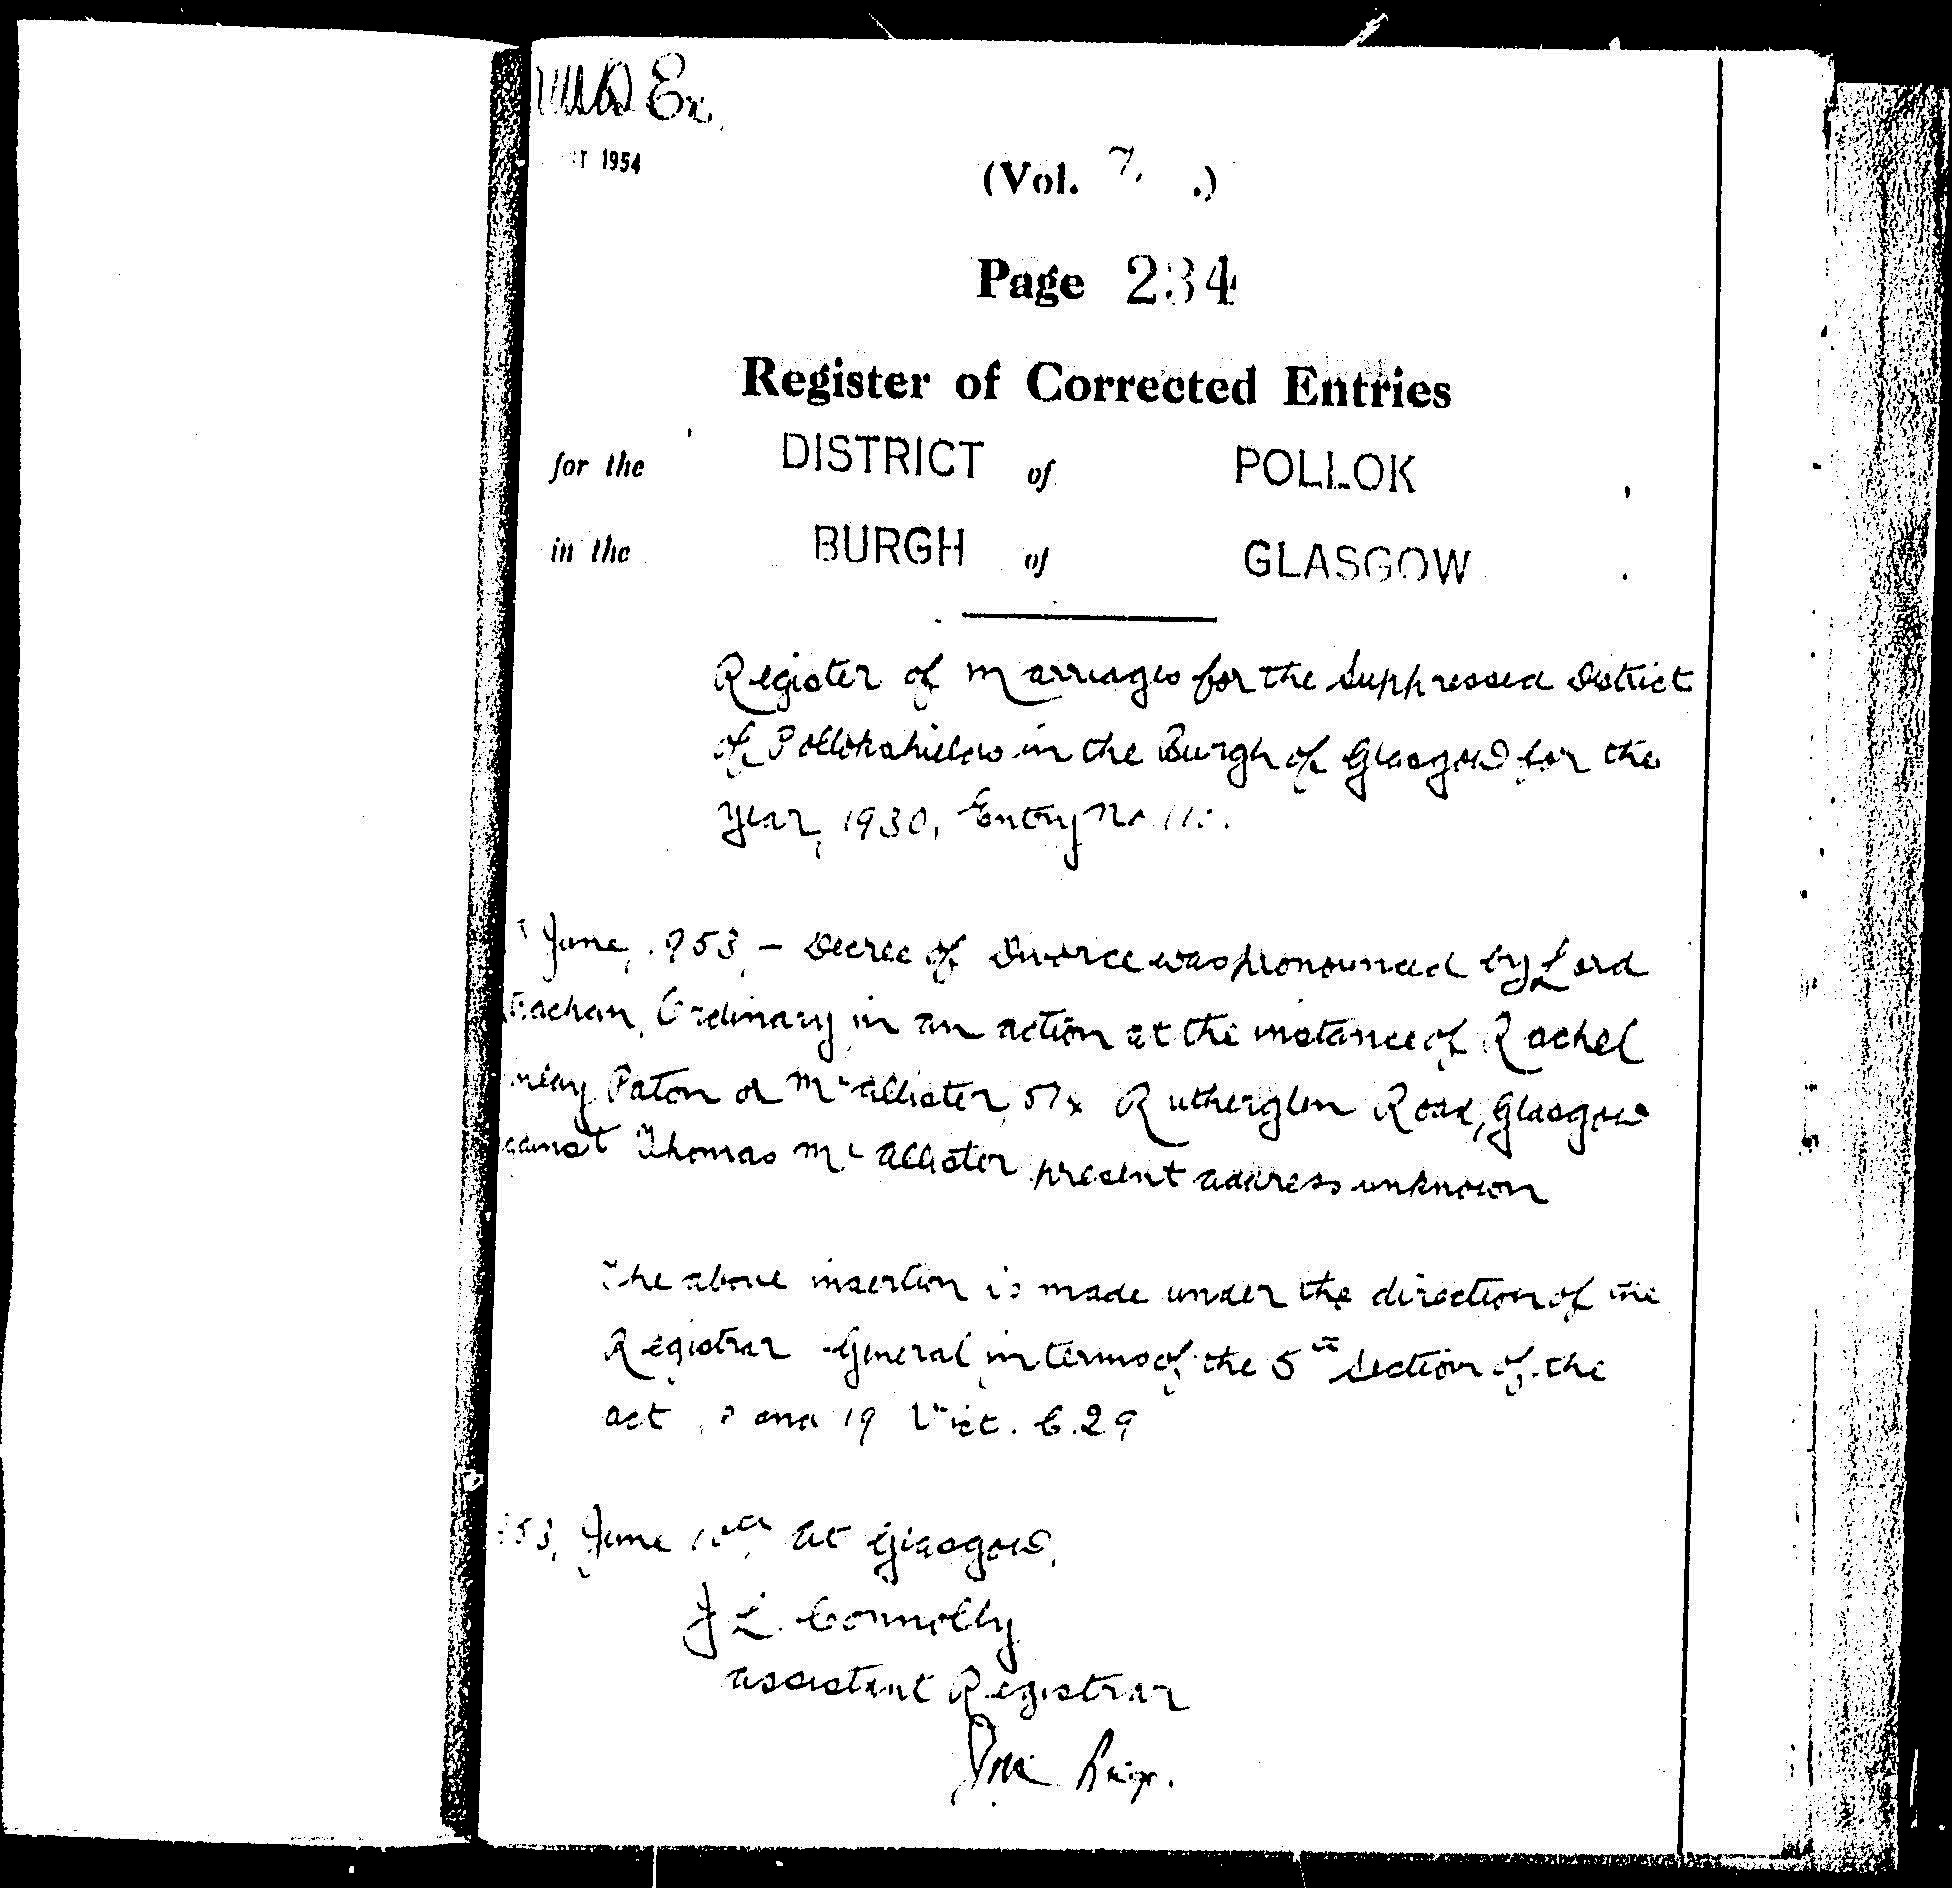 Ex.
1954
(Vol. 7. .)
Page 234
Register of Corrected Entries
for the DISTRICT of POLLOK
in the BURGH of GLASGOW
Register of Marriages for the Suppressed District
of Pollokshields in the Burgh of Glasgow for the
Year, 1930, Entry No
June, 953, – Decree of Divorce was pronounced by Lord
rachan, Ordinary in an action at the instance of Rachel
nlay Paton or McAllister, Rutherglen Road, Glasgow
gainst Thomas McAllister present address unknown
The above insertion is made under the direction of the
Registrar General in terms of the 5th Section of the
Act and 19 Vict. C.29
53, June at Glasgow,
J L. Connolly
Assistant Registrar